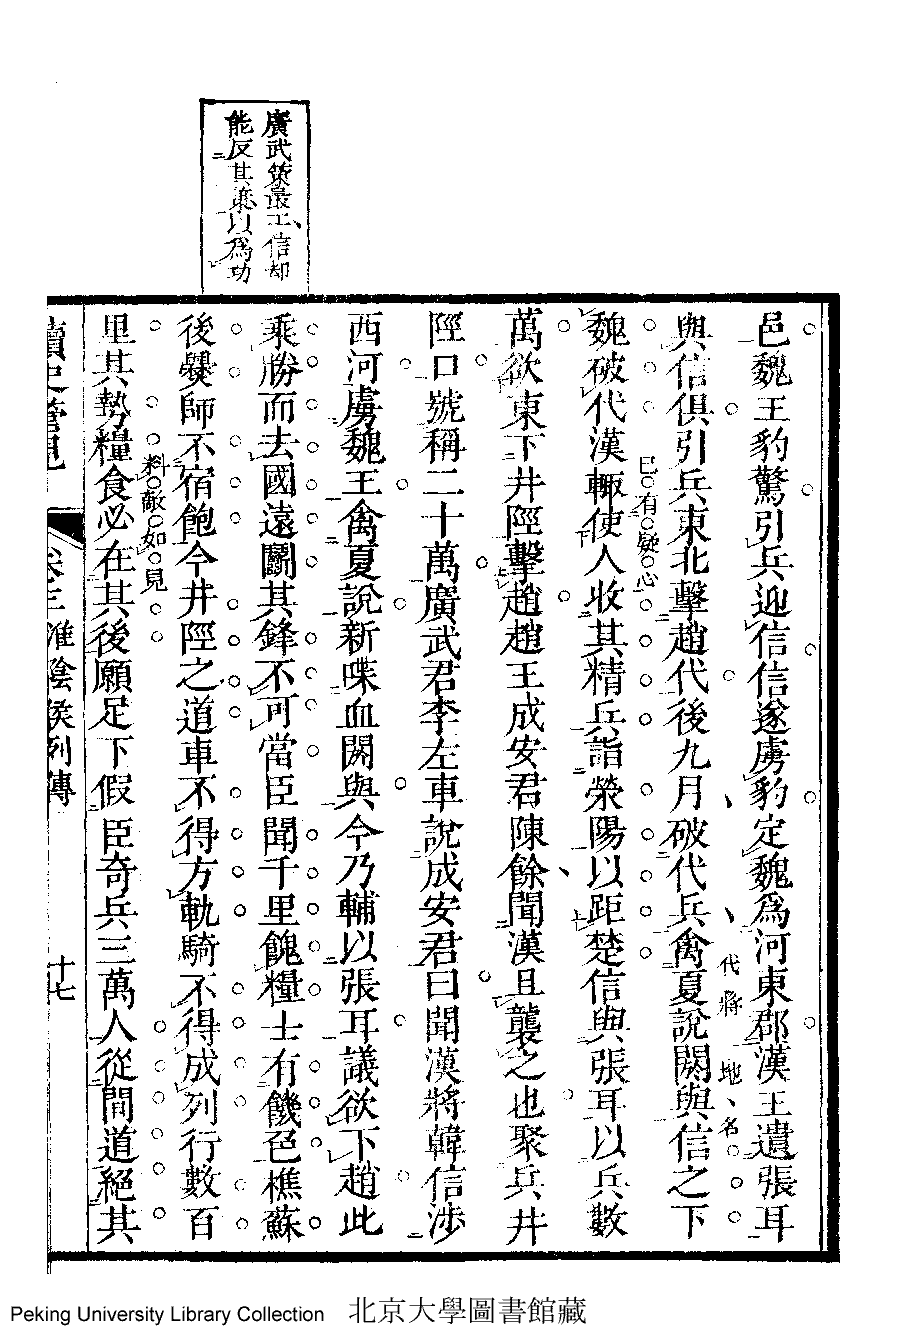 廣武策最工信却
能反其策以爲功
邑魏王豹驚引兵迎信信遂虜豹定魏爲河東郡漢王遣張耳
與信俱引兵東北擊趙代後九月破代兵禽夏說閼與信之下
代將
地名
魏破代漢輙使人收其精兵詣滎陽以距楚信與張耳以兵數
已有疑心
萬欲東下井陘擊趙趙王成安君陳餘聞漢且襲之也聚兵井
陘口號稱二十萬廣武君李左車說成安君曰聞漢將韓信涉
西河虜魏王禽夏說新喋血閼與今乃輔以張耳議欲下趙此
乘勝而去國遠鬭其鋒不可當臣聞千里餽糧士有饑色樵蘇
後爨師不宿飽今井陘之道車不得方軌騎不得成列行數百
里其勢糧食必在其後願足下假臣奇兵三萬人從間道絕其
料敵如見
讀史管見
卷三淮陰侯列傳
十七
Peking University Library Collection 北京大學圖書館藏